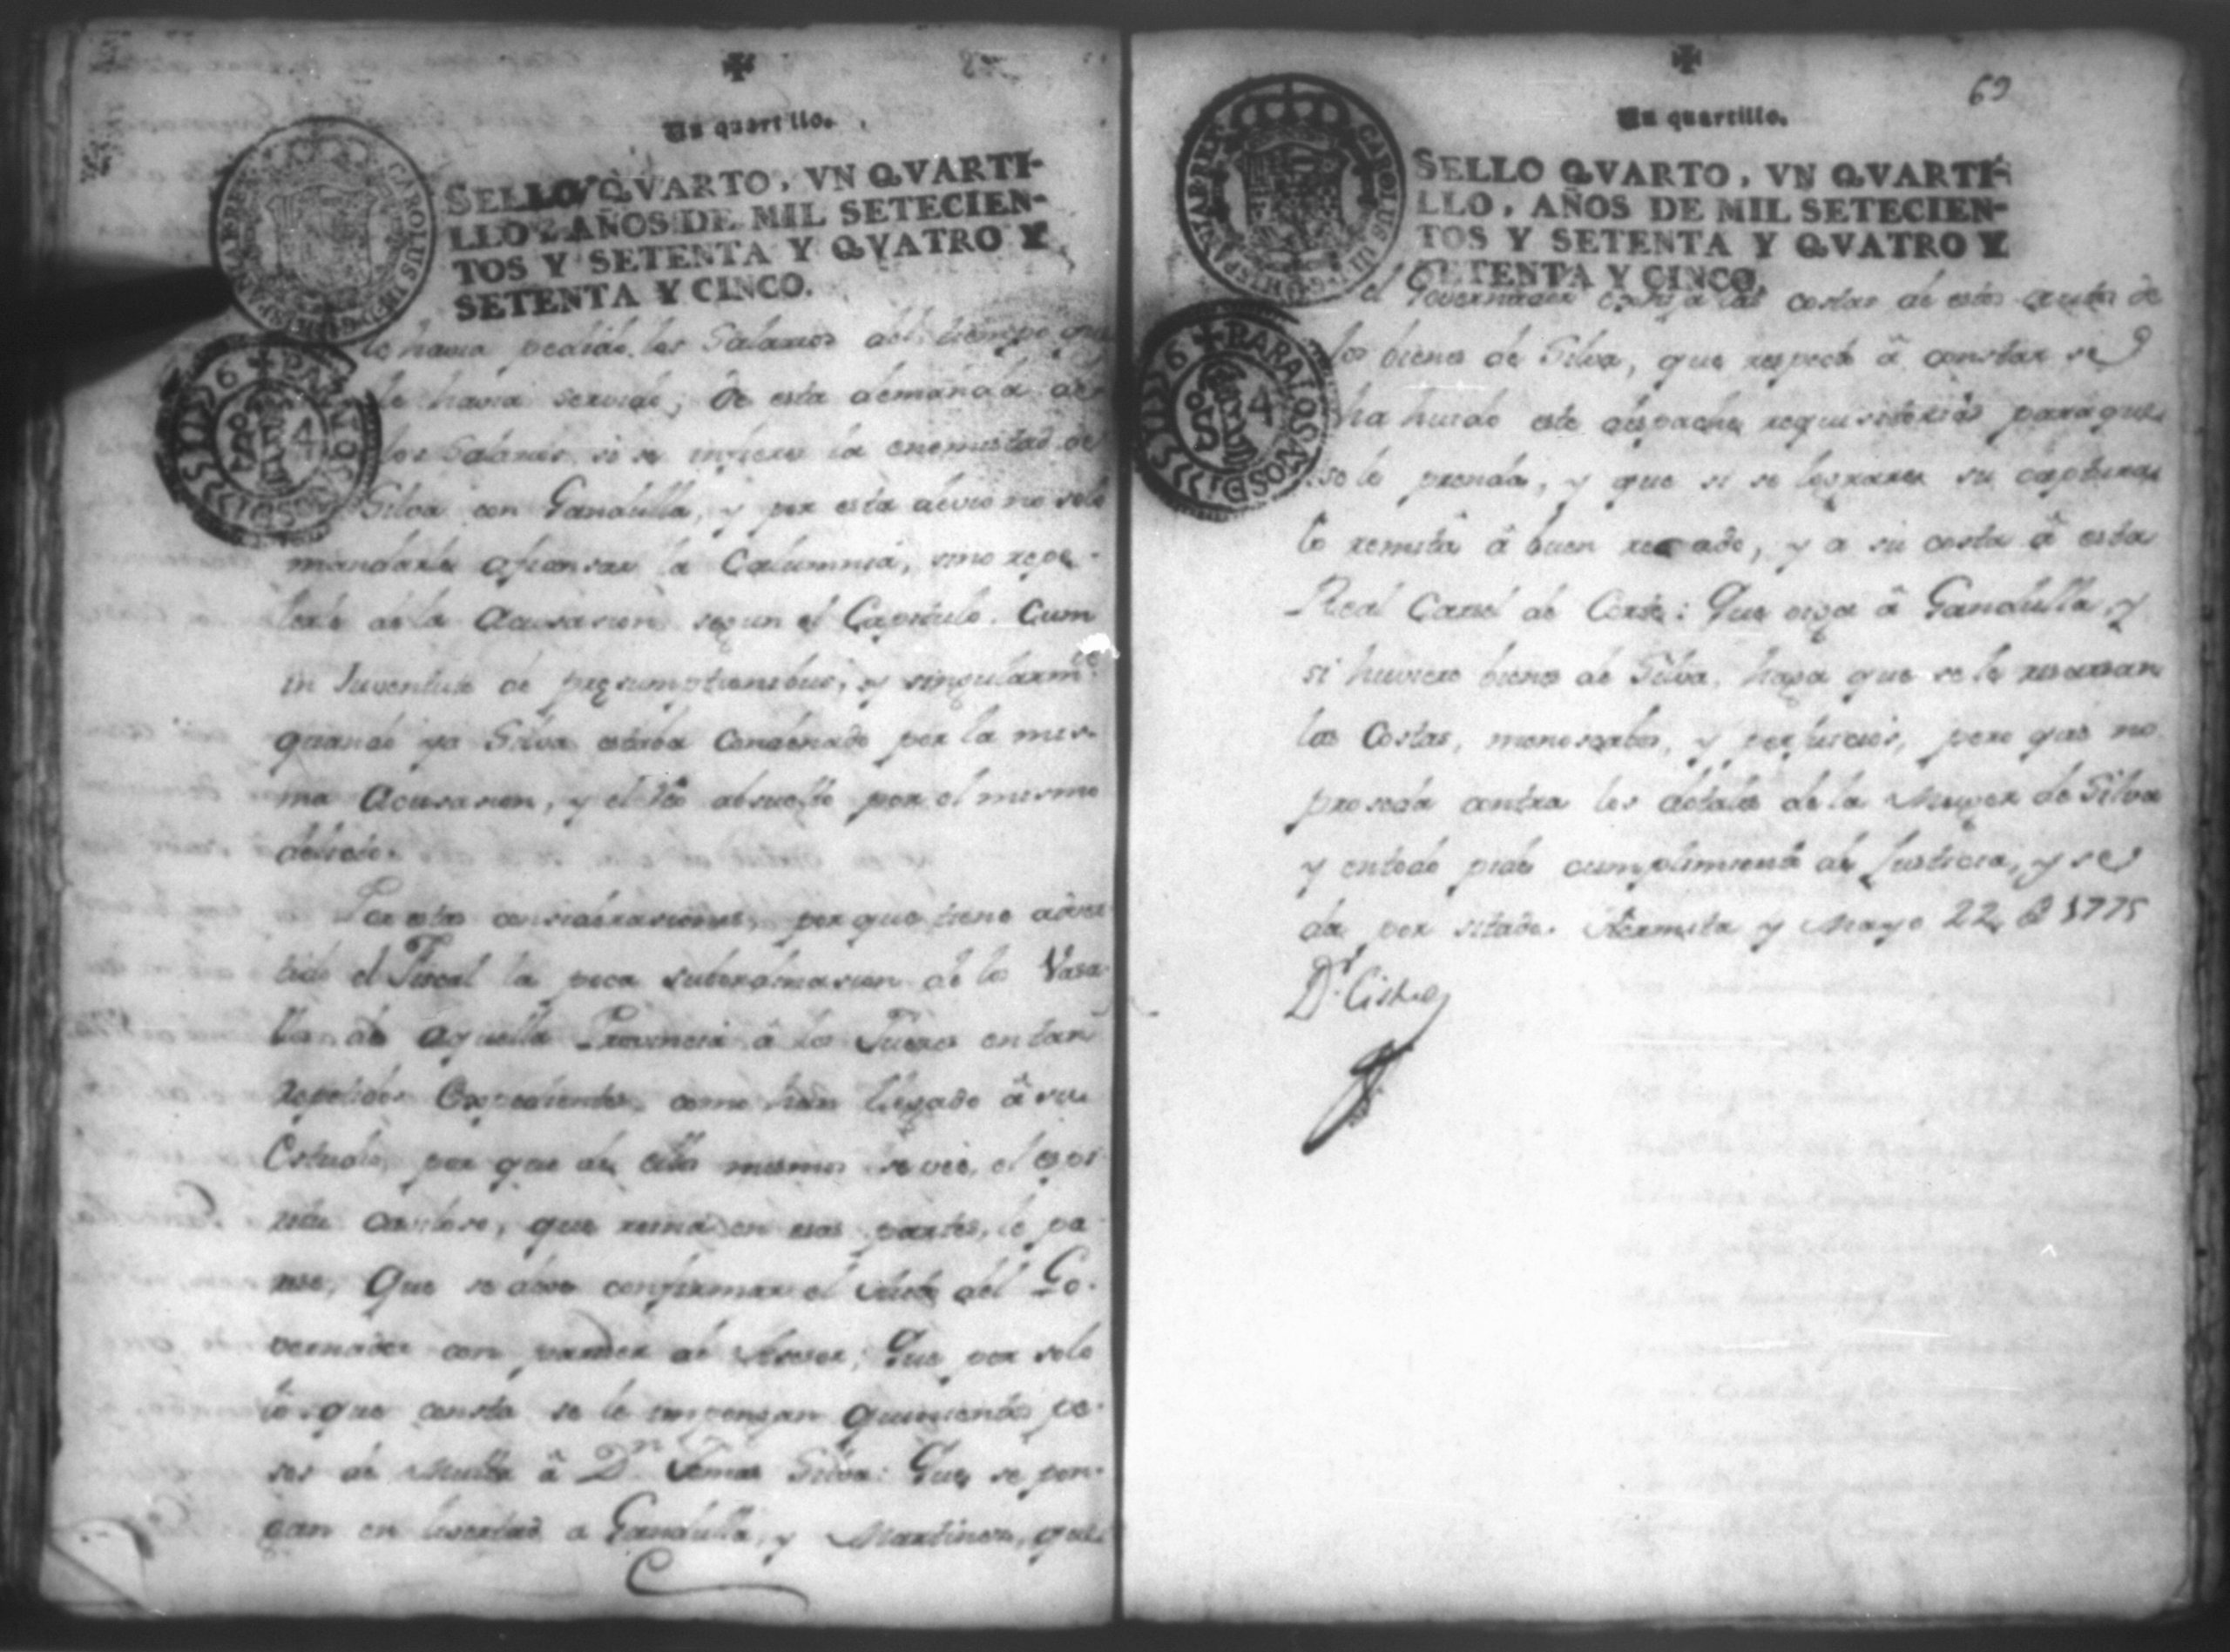 Un quartillo.
SELLO QVARTO, VN QVARTI-
LLO, AÑOS DE MIL SETECIEN-
TOS Y SETENTA Y QVATRO Y
SETENTA Y CINCO.
le havia pedido los Salarios del tiempo que
le havia servido; de esta demanda de
los Salarios si se infiere la enemistad de
Silva con Gandulla, y por esta devio no solo
mandarle afiansar la Calumnia, sino repe-
lerle de la Acusasion segun el Capitulo. Cum
in Juventute de presumptionibus, y singularmte
quando ya Silva estaba Condenado por la mis-
ma Acusasion, y el Reo absuelto por el mismo
delicto.
Por estas considerasiones, por que tiene adver-
tido el Fiscal la poca subordinasion de los Vasa-
llos de aquella Provincia â los Jueces en tan
repetidos Expedientes, como han llegado â su
Estudio, por que de ellos mismos se vée, el espi-
ritu que reina en esas partes, le pa-
rese, Que se debe confirmar el Auto del Go-
vernador con parecer de Asesor; Que por solo
lo que consta se le impongan quinientos pe-
sos de Multa â Dn Tomas Silva: Que se pon-
gan en livertad a Gandulla, y Martines, que
69
Un quartillo.
SELLO QVARTO, VN QVARTI-
LLO, AÑOS DE MIL SETECIEN-
TOS Y SETENTA Y QVATRO Y
SETENTA Y CINCO.
el Governador exija las costas de estos autos de
los bienes de Silva, que respecto â constar se
ha huido este despache requisitorias para que
se le prenda, y que si se lograre su captura
lo remita â buen recado, y a su costa â esta
Real Carsel de Corte: Que oiga â Gandulla, y
si huviere bienes de Silva, haga que se le resarsan
las Costas, menoscabos, y perjuicios, pero que no
proseda contra los dotales de la Muger de Silva
y en todo pide cumplimiento de Justicia, y se
da por sitado. y Mayo 22, de 1775
Dr. Cisto
CAROLUS III D G HISPANIAR REX
PARA LOS AÑOS D